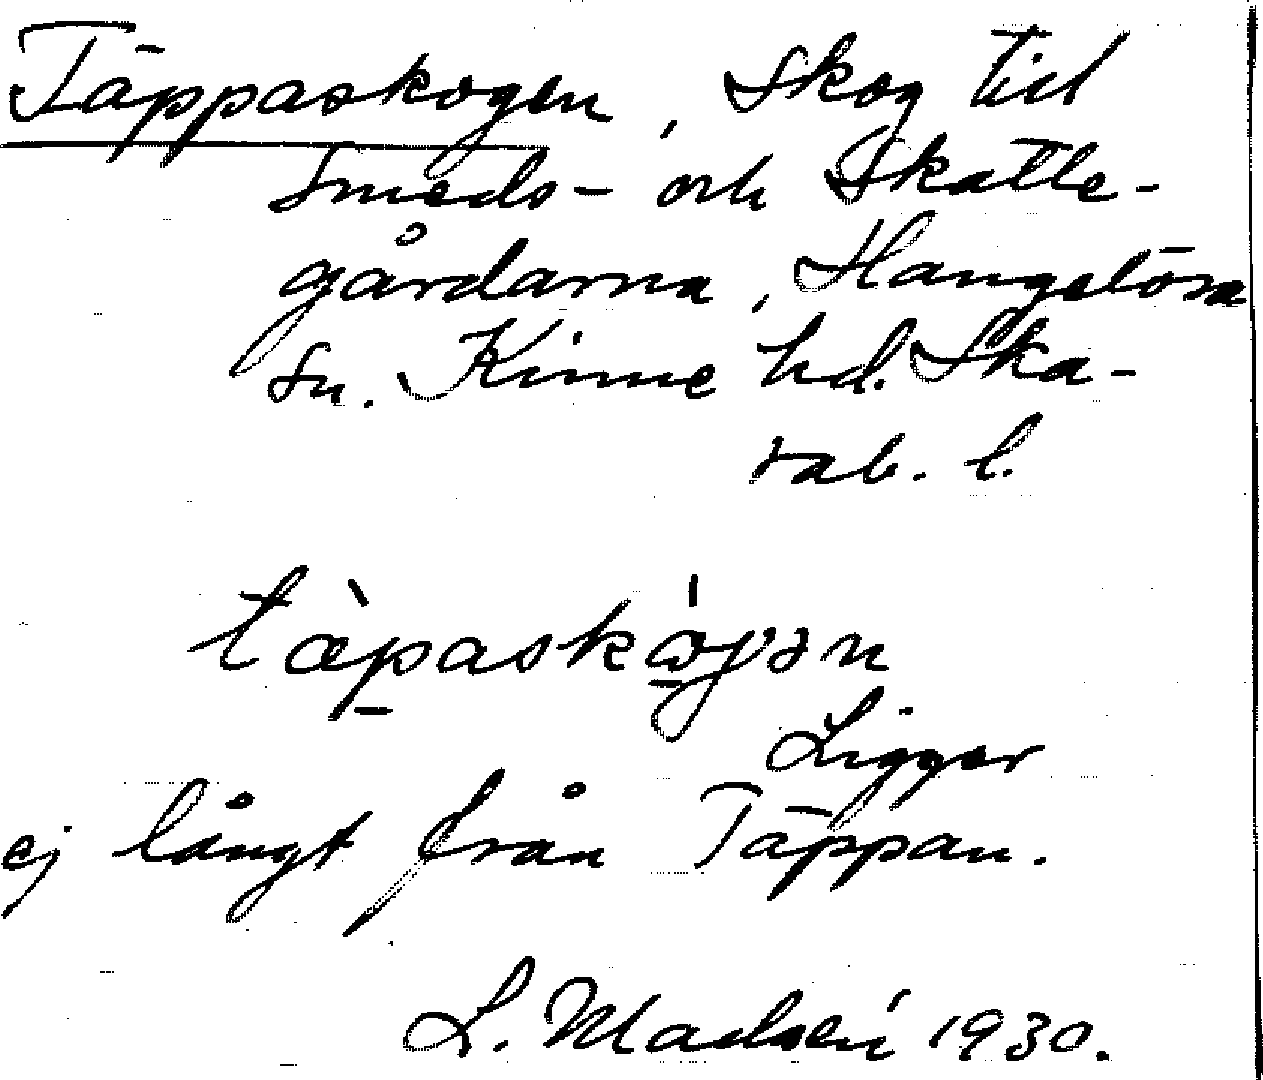 Täppaskogen, Skog till
Smeds- och Skatte-
gårdarna, Hangelösa
Sn. Kinne hd. Ska-
rab. l.
tæ̀p̠askɷ́gən
Ligger
ej långt från Täppan.
L. Madsén 1930.